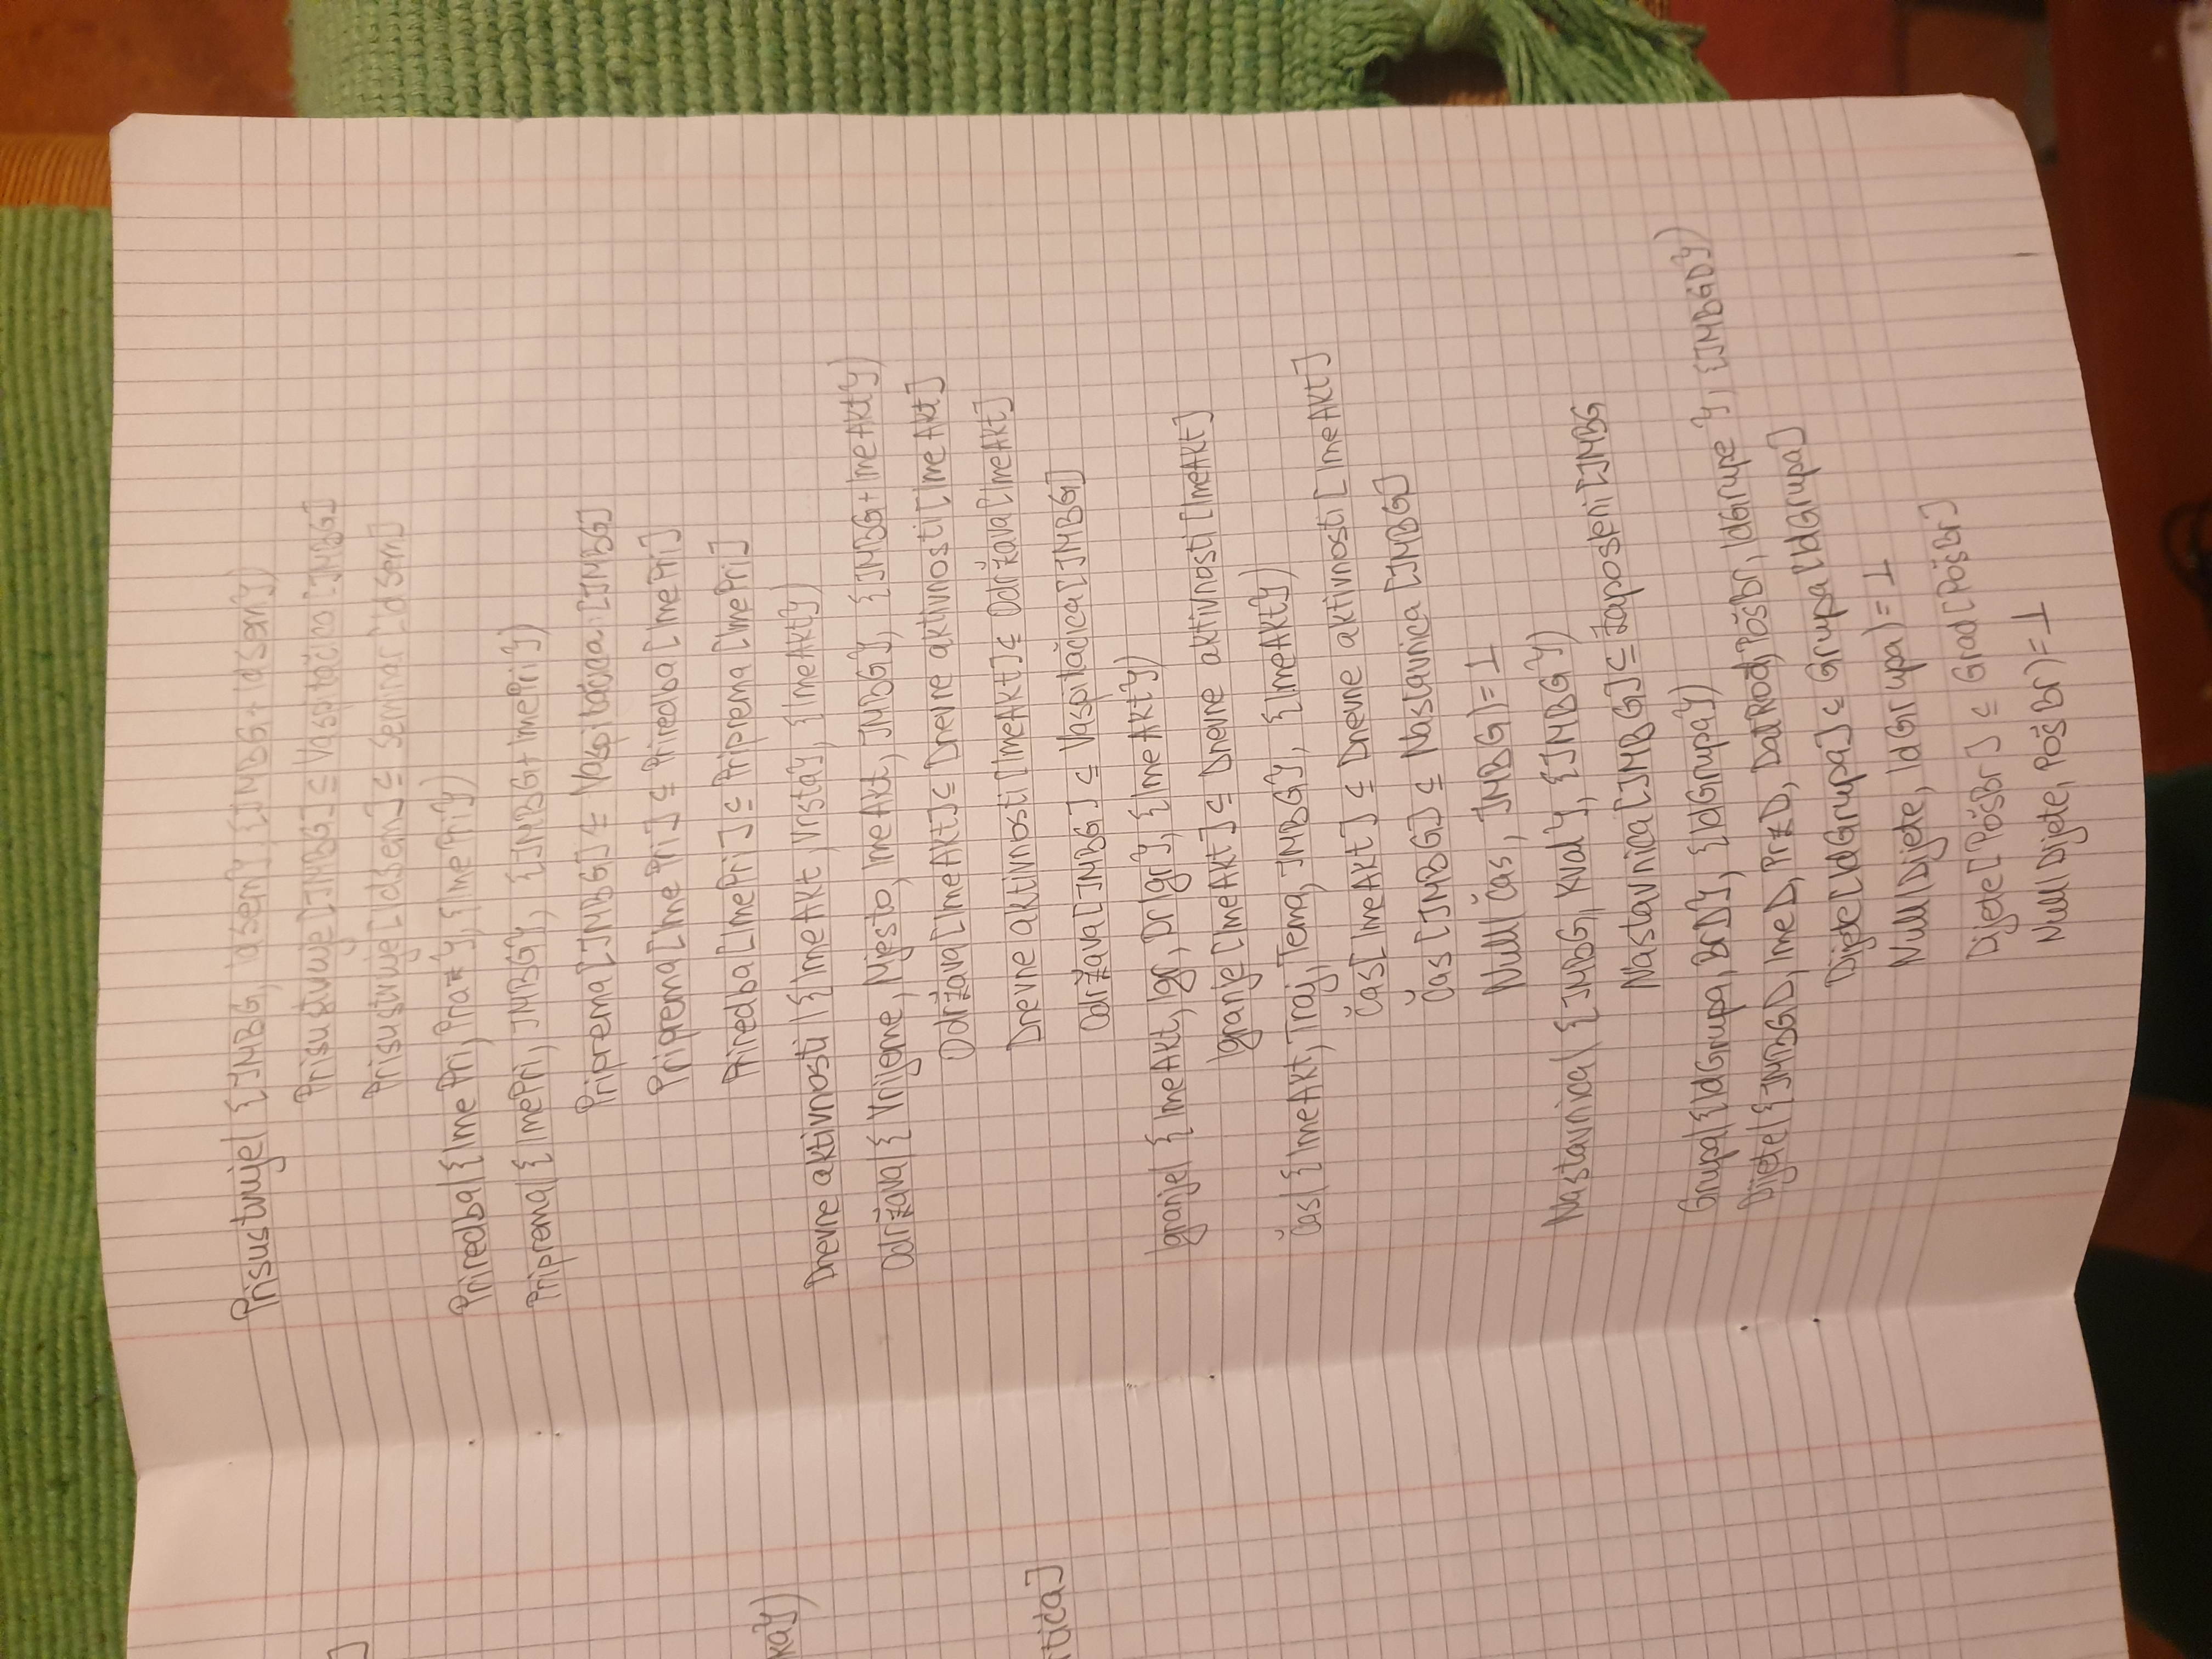 ]
kay)
rtića]
Prisustvuje( {JMBG, IdSem}, {JMBG+IdSem})
Prisustvuje[JMBG] ⊆ Vaspitačica[JMBG]
Prisustvuje[IdSem] ⊆ Seminar[IdSem]
Priredba({ImePri, Praz}, {ImePri})
Priprema({ImePri, JMBG}, {JMBG+ImePri})
Priprema[JMBG] ⊆ Vaspitačica [JMBG]
Priprema[ImePri] ⊆ Priredba[ImePri]
Priredba[ImePri] ⊆ Priprema [ImePri]
Dnevne aktivnosti({ImeAkt, Vrsta}, {ImeAkt})
Održava({Vrijeme, Mjesto, ImeAkt, JMBG}, {JMBG+ImeAkt})
Održava[ImeAkt] ⊆ Dnevne aktivnosti[ImeAkt]
Dnevne aktivnosti[ImeAkt] ⊆ Održava[ImeAkt]
Održava[JMBG] ⊆ Vaspitačica[JMBG]
Igranje( {ImeAkt, Igr, PrIgr}, {ImeAkt})
Igranje[ImeAkt] ⊆ Dnevne aktivnosti [ImeAkt]
Čas( {ImeAkt, Traj, Tema, JMBG}, {ImeAkt})
Čas[ImeAkt] ⊆ Dnevne aktivnosti[ImeAkt]
Čas [JMBG] ⊆ Nastavnica [JMBG]
Null(Čas, JMBG)=⊥
Nastavnica( {JMBG, Kval}, {JMBG})
Nastavnica[JMBG] ⊆ Zaposleni[JMBG
Grupa({IdGrupa, BrD}, {IdGrupa})
Dijete({JMBGD, ImeD, PrzD, DatRođ, PošBr, IdGrupe}, {JMBGD})
Dijete[IdGrupa] ⊆ Grupa[IdGrupa]
Null(Dijete, IdGrupa)=⊥
Dijete[PošBr] ⊆ Grad[PošBr]
Null(Dijete, PošBr)=⊥